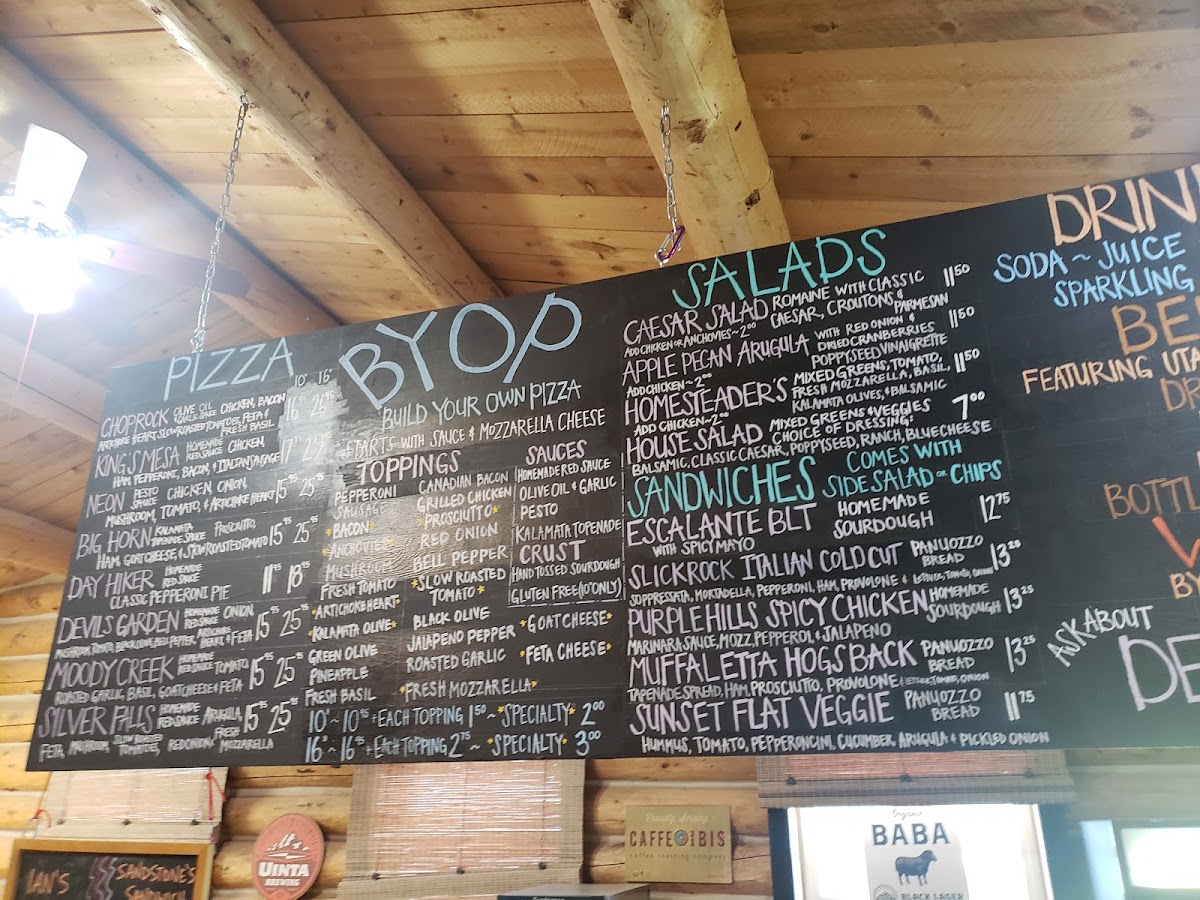 PIZZA
10" 16"
CHOPROCK OLIVE OIL & GARLIC SAUCE CHICKEN, BACON 16 26⁹⁵
ARTICHOKE HEART, SLOW ROASTED TOMATOES, FETA & FRESH BASIL
KING'S MESA HOMEMADE RED SAUCE CHICKEN, 17
HAM, PEPPERONI, BACON, & ITALIAN SAUSAGE
NEON PESTO SAUCE CHICKEN, ONION, 15⁹⁵ 25⁹⁵
MUSHROOM, TOMATO, & ARTICHOKE HEART
BIG HORN KALAMATA TAPENADE SAUCE PROSCIUTTO, 15⁹⁵ 25⁹⁵
HAM, GOAT CHEESE, & SLOW ROASTED TOMATO
DAY HIKER HOMEMADE RED SAUCE 11⁹⁵ 18⁹⁵
CLASSIC PEPPERONI PIE
DEVILS GARDEN HOMEMADE RED SAUCE ONION, 15⁹⁵ 25⁹⁵
MUSHROOM, TOMATO, BLACK OLIVE, BELL PEPPER, ARTICHOKE HEART & FETA
MOODY CREEK HOMEMADE RED SAUCE TOMATO, 15⁹⁵ 25⁹⁵
ROASTED GARLIC, BASIL, GOAT CHEESE & FETA
SILVER FALLS HOMEMADE RED SAUCE ARUGULA 15⁹⁵ 25⁹⁵
FETA, MUSHROOM, SLOW ROASTED TOMATOES, RED ONION & FRESH MOZZARELLA
BYOP
BUILD YOUR OWN PIZZA
STARTS WITH SAUCE & MOZZARELLA CHEESE
TOPPINGS
PEPPERONI
SAUSAGE
*BACON*
*ANCHOVIES*
MUSHROOM
FRESH TOMATO
*ARTICHOKE HEART*
*KALAMATA OLIVE*
GREEN OLIVE
PINEAPPLE
FRESH BASIL
CANADIAN BACON
GRILLED CHICKEN
*PROSCIUTTO*
RED ONION
BELL PEPPER
*SLOW ROASTED
TOMATO*
BLACK OLIVE
JALAPENO PEPPER
ROASTED GARLIC
*FRESH MOZZARELLA*
SAUCES
HOMEMADE RED SAUCE
OLIVE OIL & GARLIC
PESTO
KALAMATA TOPENADE
CRUST
HAND TOSSED SOURDOUGH
GLUTEN FREE (10" ONLY)
*GOAT CHEESE*
*FETA CHEESE*
10" ~ 10⁹⁵ + EACH TOPPING 1⁵⁰ ~ *SPECIALTY* 2⁰⁰
16" ~ 16⁹⁵ + EACH TOPPING 2⁷⁵ ~ *SPECIALTY* 3⁰⁰
SALADS
CAESAR SALAD ROMAINE WITH CLASSIC 11⁵⁰
ADD CHICKEN OR ANCHOVIES ~ 2⁰⁰ CAESAR, CROUTONS, & PARMESAN
APPLE PECAN ARUGULA WITH RED ONION & 11⁵⁰
DRIED CRANBERRIES
ADD CHICKEN ~ 2⁰⁰ POPPYSEED VINAIGRETTE
HOMESTEADER'S MIXED GREENS, TOMATO, 11⁵⁰
FRESH MOZZARELLA, BASIL,
ADD CHICKEN ~ 2⁰⁰ KALAMATA OLIVES, & BALSAMIC
HOUSE SALAD MIXED GREENS & VEGGIES 7⁰⁰
CHOICE OF DRESSING:
BALSAMIC, CLASSIC CAESAR, POPPYSEED, RANCH, BLUE CHEESE
SANDWICHES COMES WITH
SIDE SALAD OR CHIPS
ESCALANTE BLT HOMEMADE SOURDOUGH 12⁷⁵
WITH SPICY MAYO
SLICKROCK ITALIAN COLD CUT PANUOZZO BREAD 13²⁵
SOPPRESSATA, MORTADELLA, PEPPERONI, HAM, PROVOLONE & LETTUCE, TOMATO, ONION
PURPLE HILLS SPICY CHICKEN HOMEMADE SOURDOUGH 13²⁵
MARINARA SAUCE, MOZZ, PEPPEROL, & JALAPENO
MUFFALETTA HOGSBACK PANUOZZO BREAD 13²⁵
TAPENADE SPREAD, HAM, PROSCIUTTO, PROVOLONE & LETTUCE, TOMATO, ONION
SUNSET FLAT VEGGIE PANUOZZO BREAD 11⁷⁵
HUMMUS, TOMATO, PEPPERONCINI, CUCUMBER, ARUGULA & PICKLED ONION
DRIN
SODA ~ JUICE
SPARKLING
BE
FEATURING UTA
DR
BOTTL
BY
ASK ABOUT
DE
IAN'S SANDSTONE'S
UINTA
BREWING
Proudly Serving
CAFFE IBIS
coffee roasting company
Organic
BABA
BLACK LAGER